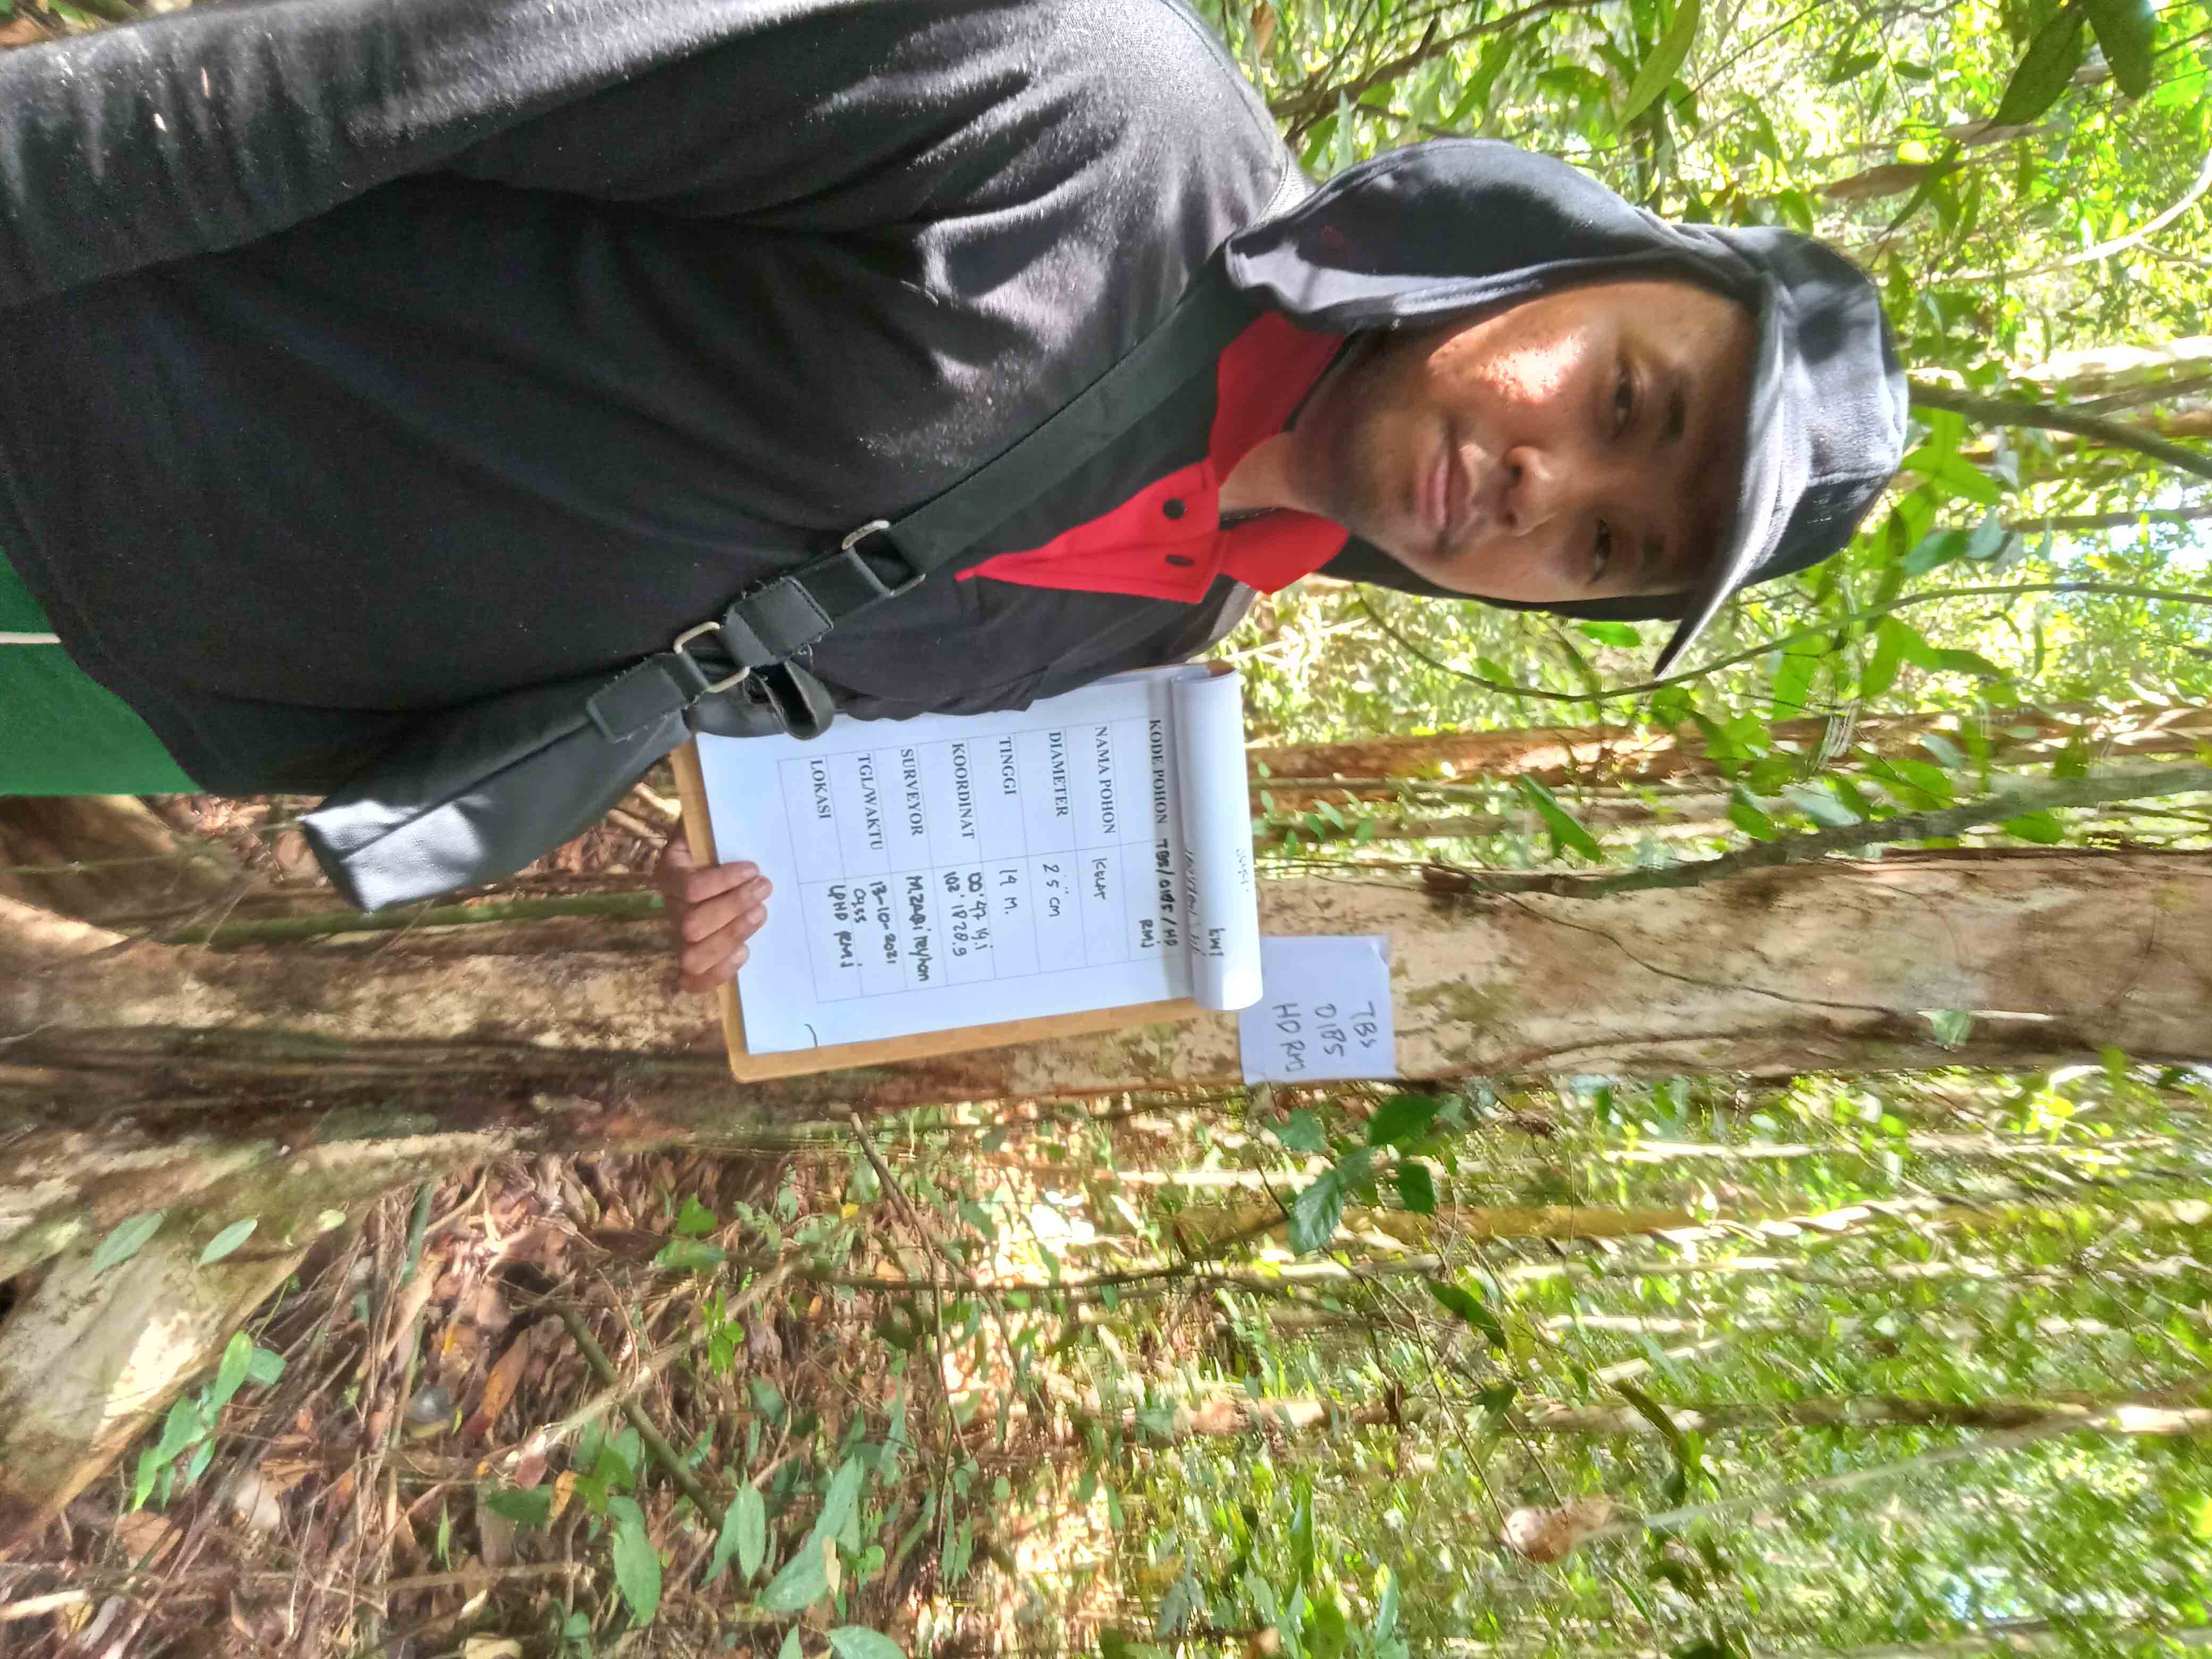 TBS
0185
HD RMJ
KODE POHON TBS/0185/HD
RMJ
NAMA POHON KELAT
DIAMETER 25 CM
TINGGI 19 M.
KOORDINAT 00° 47 19.1
102° 18 28.9
SURVEYOR M.ZAQi reyhan
TGL/WAKTU 13-10-2021
09.55
LOKASI LPHD RMJ